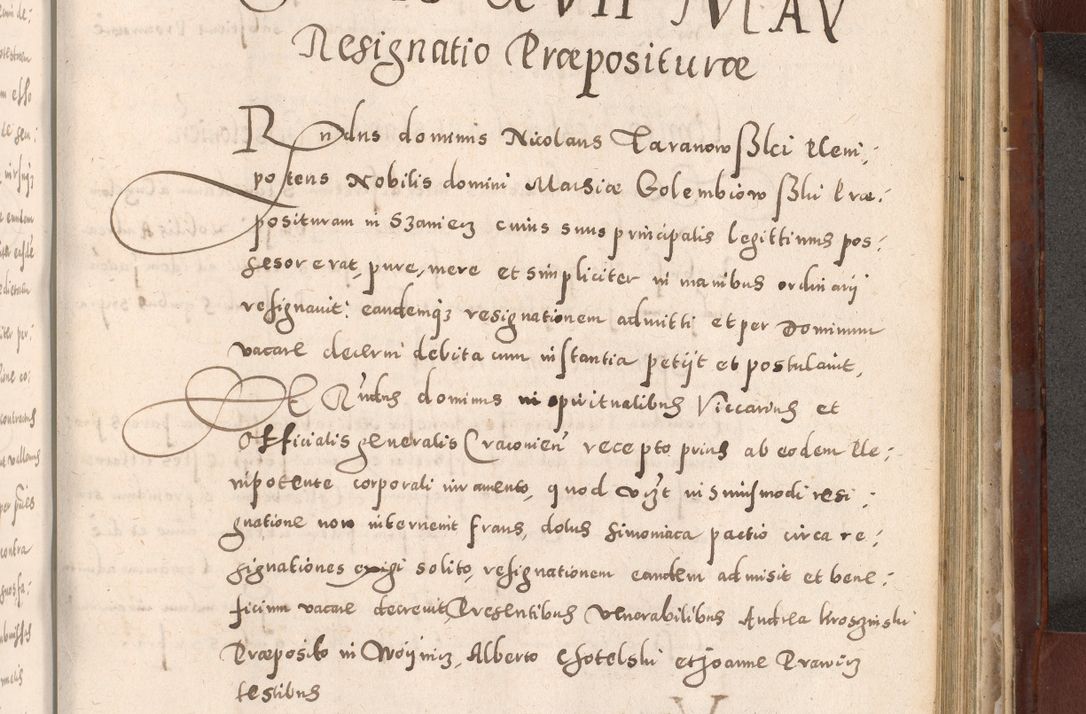 XVII MAV
Resignatio Præposituræ
Rndus dominus Nicolaus Taranowßki Pleni,
potens Nobilis domini Mathiæ Golembiowßki Præ:
posituram in Szaniecz cuius suus principalis legittimus pos:
sesor erat, pure, mere et simpliciter in manibus ordinarii
resignauit: eandemq3 resignationem admitti et per Dominum
vacare decerni debita cum instantia petijt et postulauit,
Et Rndus dominus in spiritualibus Viccarius et
Officialis generalis Cracouien recepto prius ab eodem Ple:
nipotente corporali iuramento, quod vizt in huiusmodi resi:
gnatione non interuenit fraus, dolus simoniaca pactio circa re:
signationes exigi solito, resignationem eandem admisit et bene:
ficium vacare decreuit Presentibus venerabilibus Andrea Kroszinski
Præposito in Woynicz, Alberto Chotelski et Joanne Prawicz
testibus